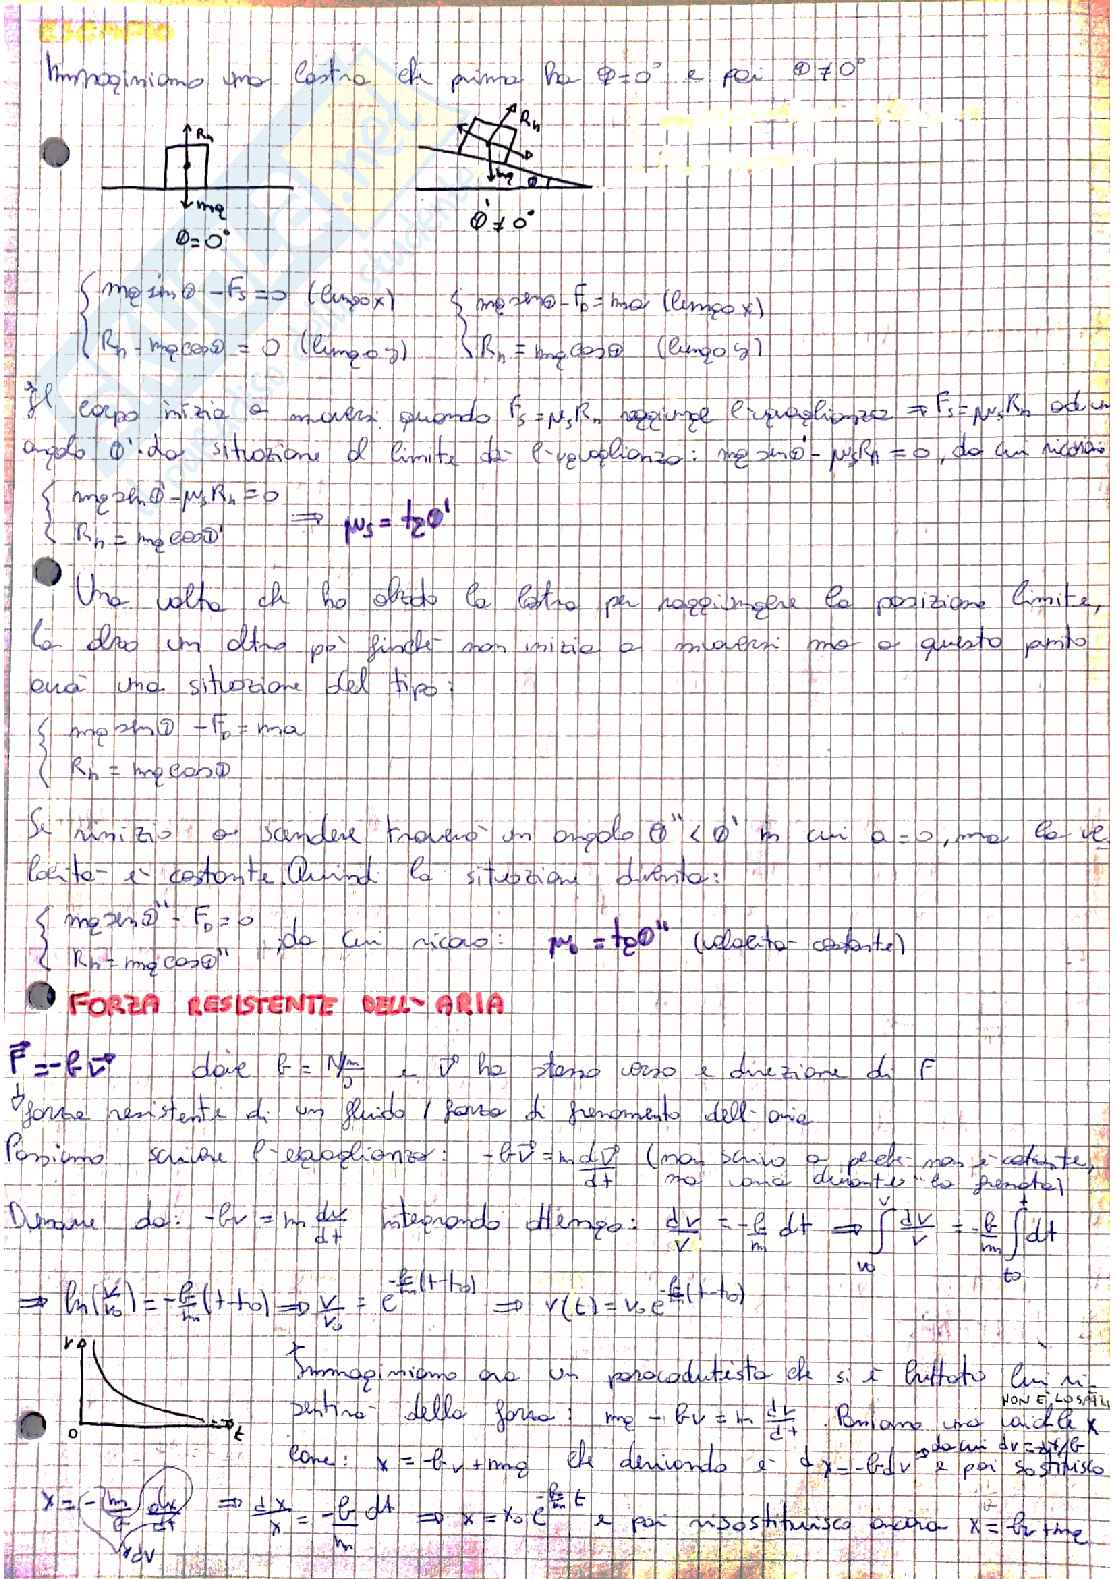 ESEMPIO
Immaginiamo una lastra che prima ha θ=0° e poi θ≠0°
Rn
mg
θ=0°
Rn
mg
θ
θ'≠0°
{ mg sinθ - Fs = 0 (lungo x)
Rn - mg cosθ = 0 (lungo y)
{ mg senθ - FD = ma (lungo x)
Rn = mg cosθ (lungo y)
Il corpo inizia a muoversi quando Fs = μs Rn raggiunge l'uguaglianza ⇒ Fs = μs Rn ad un
angolo θ' : da situazione al limite da l'uguaglianza: mg senθ' - μs Rn = 0, da cui
{ mg senθ' - μs Rn = 0
Rn = mg cosθ'
⇒ μs = tgθ'
Una volta che ho alzato la lastra per raggiungere la posizione limite,
la alzo un altro pò finché non inizia a muoversi ma a questo punto
avrà una situazione del tipo:
{ mg senθ - FD = ma
Rn = mg cosθ
Se inizio a scendere troverò un angolo θ'' < θ' in cui a = 0, ma la ve
locità è costante. Quindi la situazione diventa:
{ mg senθ'' - FD = 0
Rn = mg cosθ''
, da cui ricavo: μD = tgθ'' (velocità costante)
FORZA RESISTENTE DELL'ARIA
F = -bv dove b = N m/s e v ha stesso verso e direzione di F
forza resistente di un fluido / forza di frenamento dell'aria
Possiamo scrivere l'eguaglianza: -bv = m dv/dt (non scrivo a perché non è costante,
ma varia durante la frenata)
Dunque da: -bv = m dv/dt integrando : dv/v = -b/m dt ⇒ ∫v0 v dv/v = -b/m ∫t0 t dt
⇒ ln(v/v0) = -b/m (t-t0) ⇒ v/v0 = e^-b/m(t-t0) ⇒ v(t) = v0 e^-b/m(t-t0)
v
0
t
Immaginiamo ora un paracadutista che si è buttato
della forza: mg - bv = m dv/dt. Poniamo una x
NON È LO
come: x = -bv + mg che derivando è dx = -b dv e poi sostituisco
da cui dv =
x = -m/b dx/dt ⇒ dx/x = -b/m dt ⇒ x = x0 e^-b/m t e poi risostituisco ancora x = -bv + mg
dv